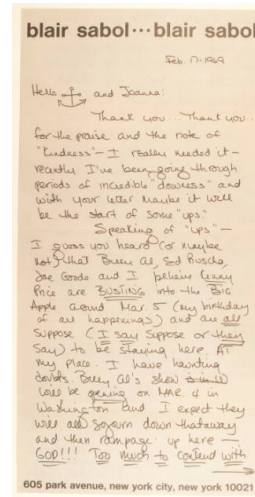 blair sabol...blair sabol
Feb. 17-1969
Hello and Joanna:
Thank you... Thank you...
for the praise and the note of
"Kindness" - I really needed it -
recently I've been going through
periods of incredible downess" and
with your letter maybe it will
be the start of some "ups."
Speaking of "ups" -
I guess you heard (or maybe
not) that Billy Al, Ed Ruscha,
Joe Goode and I believe Kenny
Price are BUSTING into the Big
Apple around Mar. 5 (my birthday
of all happenings) and are all
suppose (I say suppose or they
say) to be staying here AT
my place. I have haunting
doubts. Billy Al's show
will be opening on MAR. 4 in
Washington and I expect they
will all sojourn down thataway
and then rampage up here -
GOD!!! Too much to contend with
605 park avenue, new york city, new york 10021